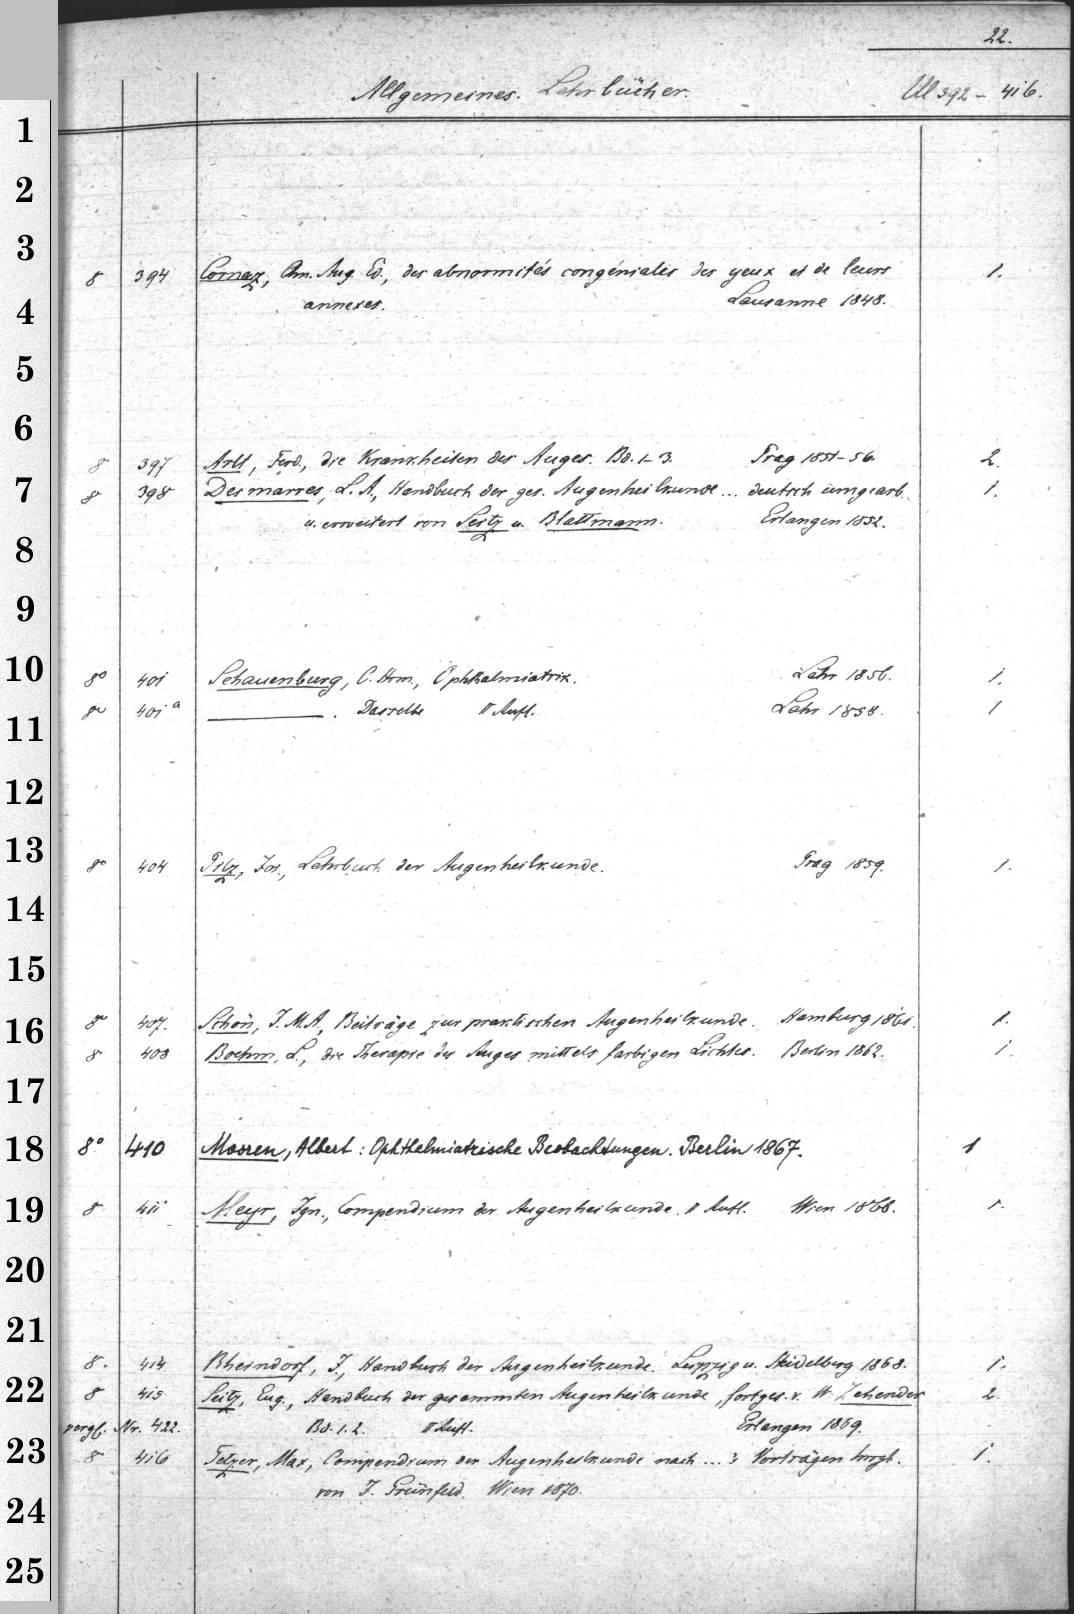 22.
Allgemeines. Lehrbücher. Ul 392 - 416.
1
2
3
8 394 Cornaz, Chn. Aug. Ed., des abnormités congéniales des yeux et de leurs 1.
4 annexes. Lausanne 1848.
5
6
8 397 Arlt, Ferd., die Krankheiten des Auges. Bd. 1-3. Prag 1851-56. 2.
7 8 398 Desmarres, L. A., Handbuch der ges. Augenheilkunde ... deutsch umgearb. 1.
u. erweitert von Seitz u. Blattmann. Erlangen 1852.
8
9
10 8° 401 Schauenburg, C. Hrm., Ophthalmiatrik. Lahr 1856. 1.
8° 401a ———. Dasselbe II Aufl. Lahr 1858. 1
11
12
13 8° 404 Pilz, Jos., Lehrbuch der Augenheilkunde. Prag 1859. 1.
14
15
16 8° 407. Schön, J. M. A., Beiträge zur praktischen Augenheilkunde. Hamburg 1861. 1.
8 408 Boehm, L., die Therapie des Auges mittels farbigen Lichtes. Berlin 1862. 1.
17
18 8° 410 Mooren, Albert: Ophthelmiatrische Beobachtungen. Berlin 1867. 1
19 8 411 Meyr, Ign., Compendium der Augenheilkunde. II Aufl. Wien 1868. 1.
20
21
8. 414 Rheindorf, J., Handbuch der Augenheilkunde. Leipzig u. Heidelberg 1868. 1.
22 8 415 Seitz, Eug., Handbuch der gesammten Augenheilkunde, fortges. v. W. Zehender 2.
vergl. Nr. 422. Bd. 1.2. II Aufl. Erlangen 1869.
23 8 416 Tetzer, Max, Compendium der Augenheilkunde nach ... Vorträgen hrsgb. 1.
von J. Grünfeld. Wien 1870.
24
25